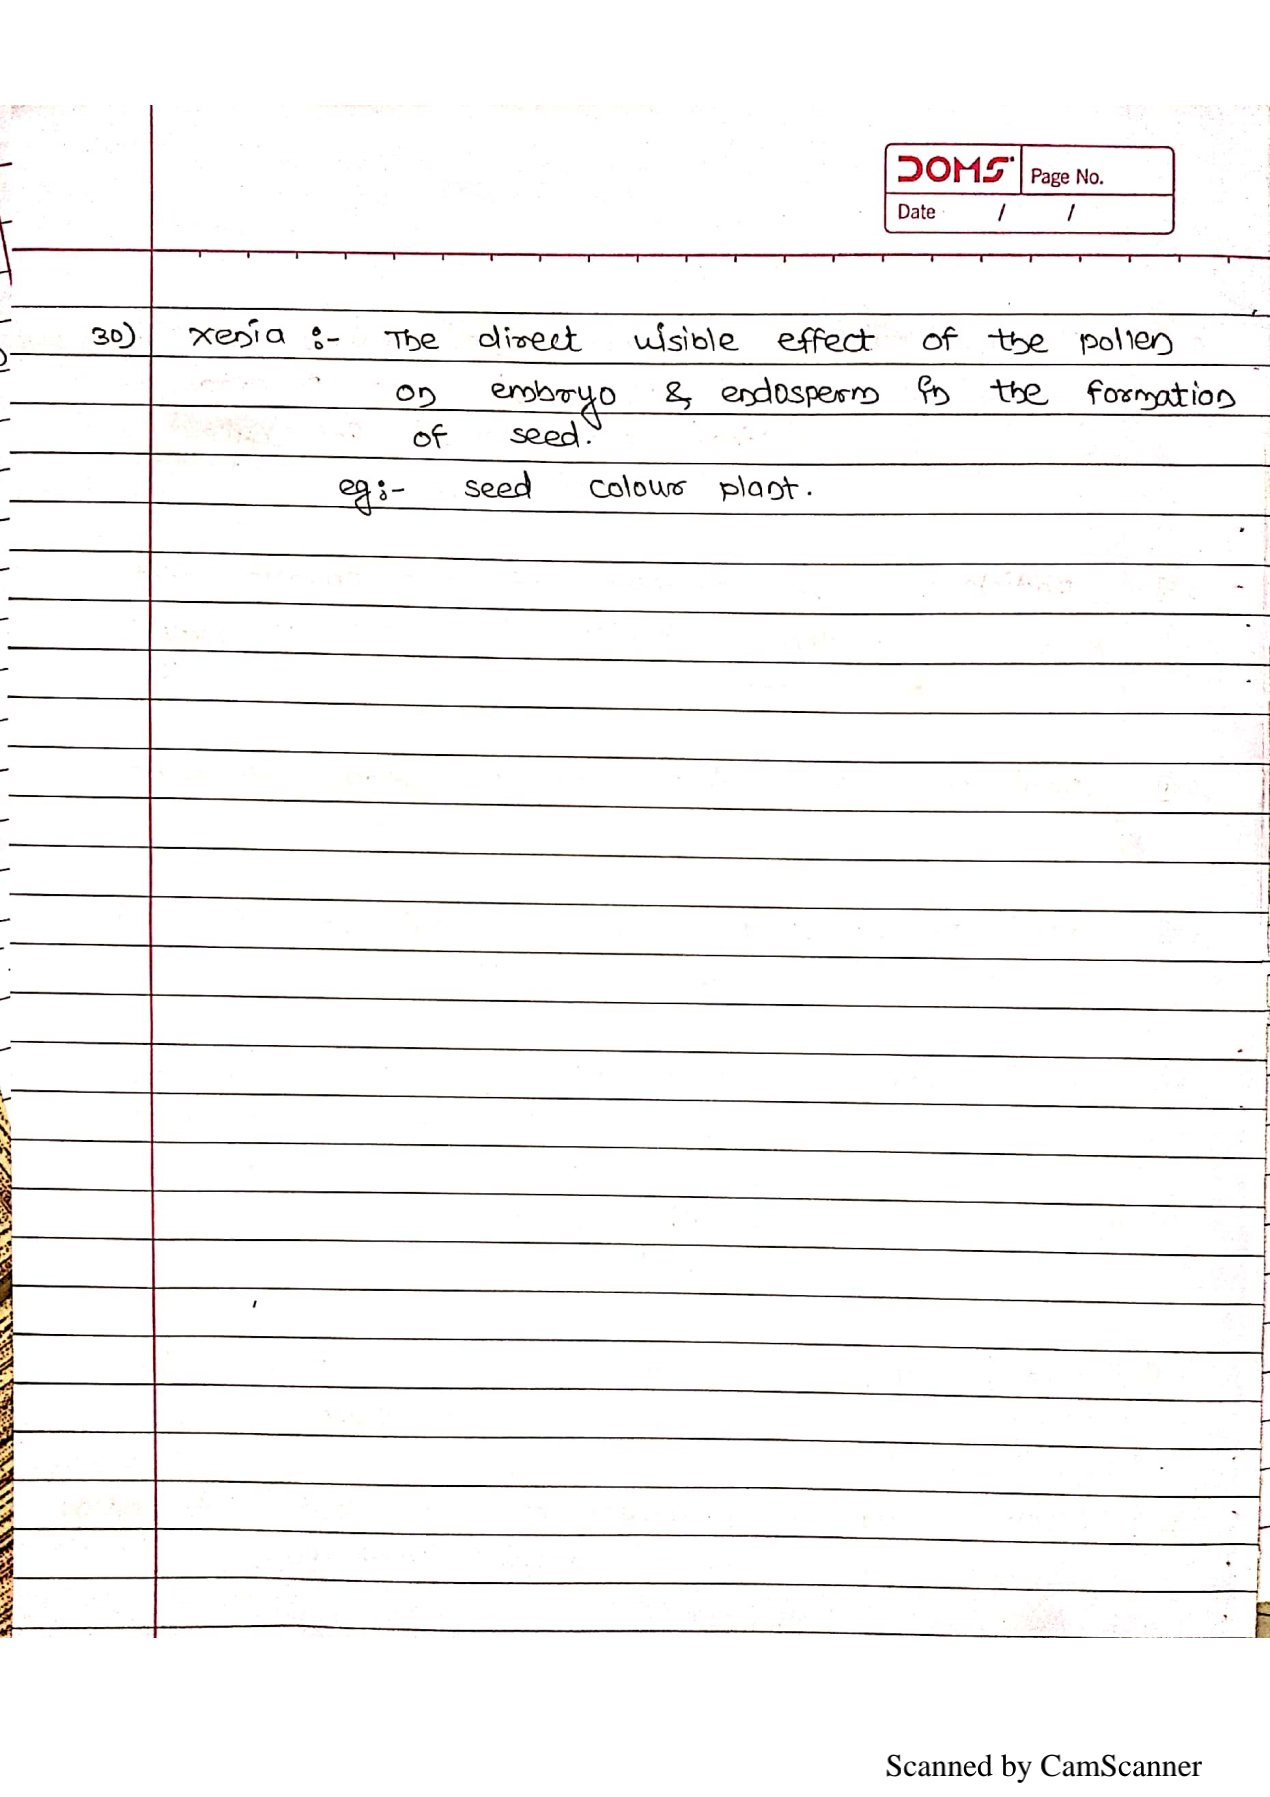 DOMS Page No.
Date / /
30) xenia :- The direct visible effect of the pollen
on embryo & endosperm in the formation
of seed.
eg:- seed colour plant.
Scanned by CamScanner